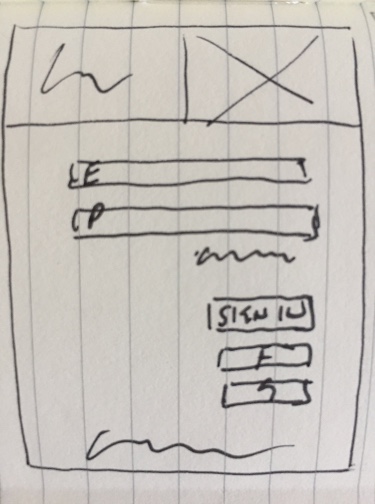 E
P
SIGN IN
F